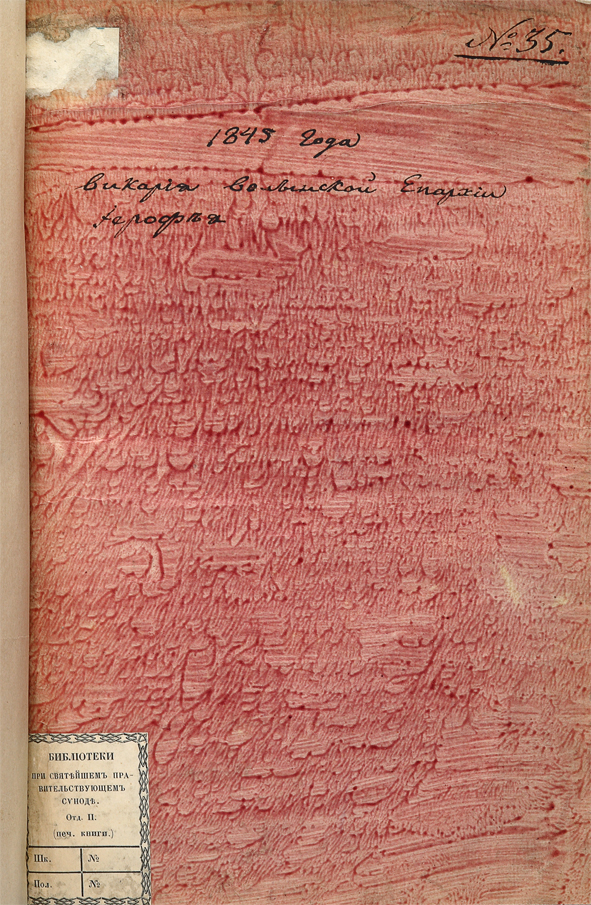 № 35.
1845 года
викарія волынской Епархіи
Іерофѣя
БИБЛІОТЕКИ
ПРИ СВЯТѢЙШЕМЪ ПРА-
ВИТЕЛЬСТВУЮЩЕМЪ
СѴНОДѢ.
Отд. II.
(печ. книги.)
Шк. №
Пол. №